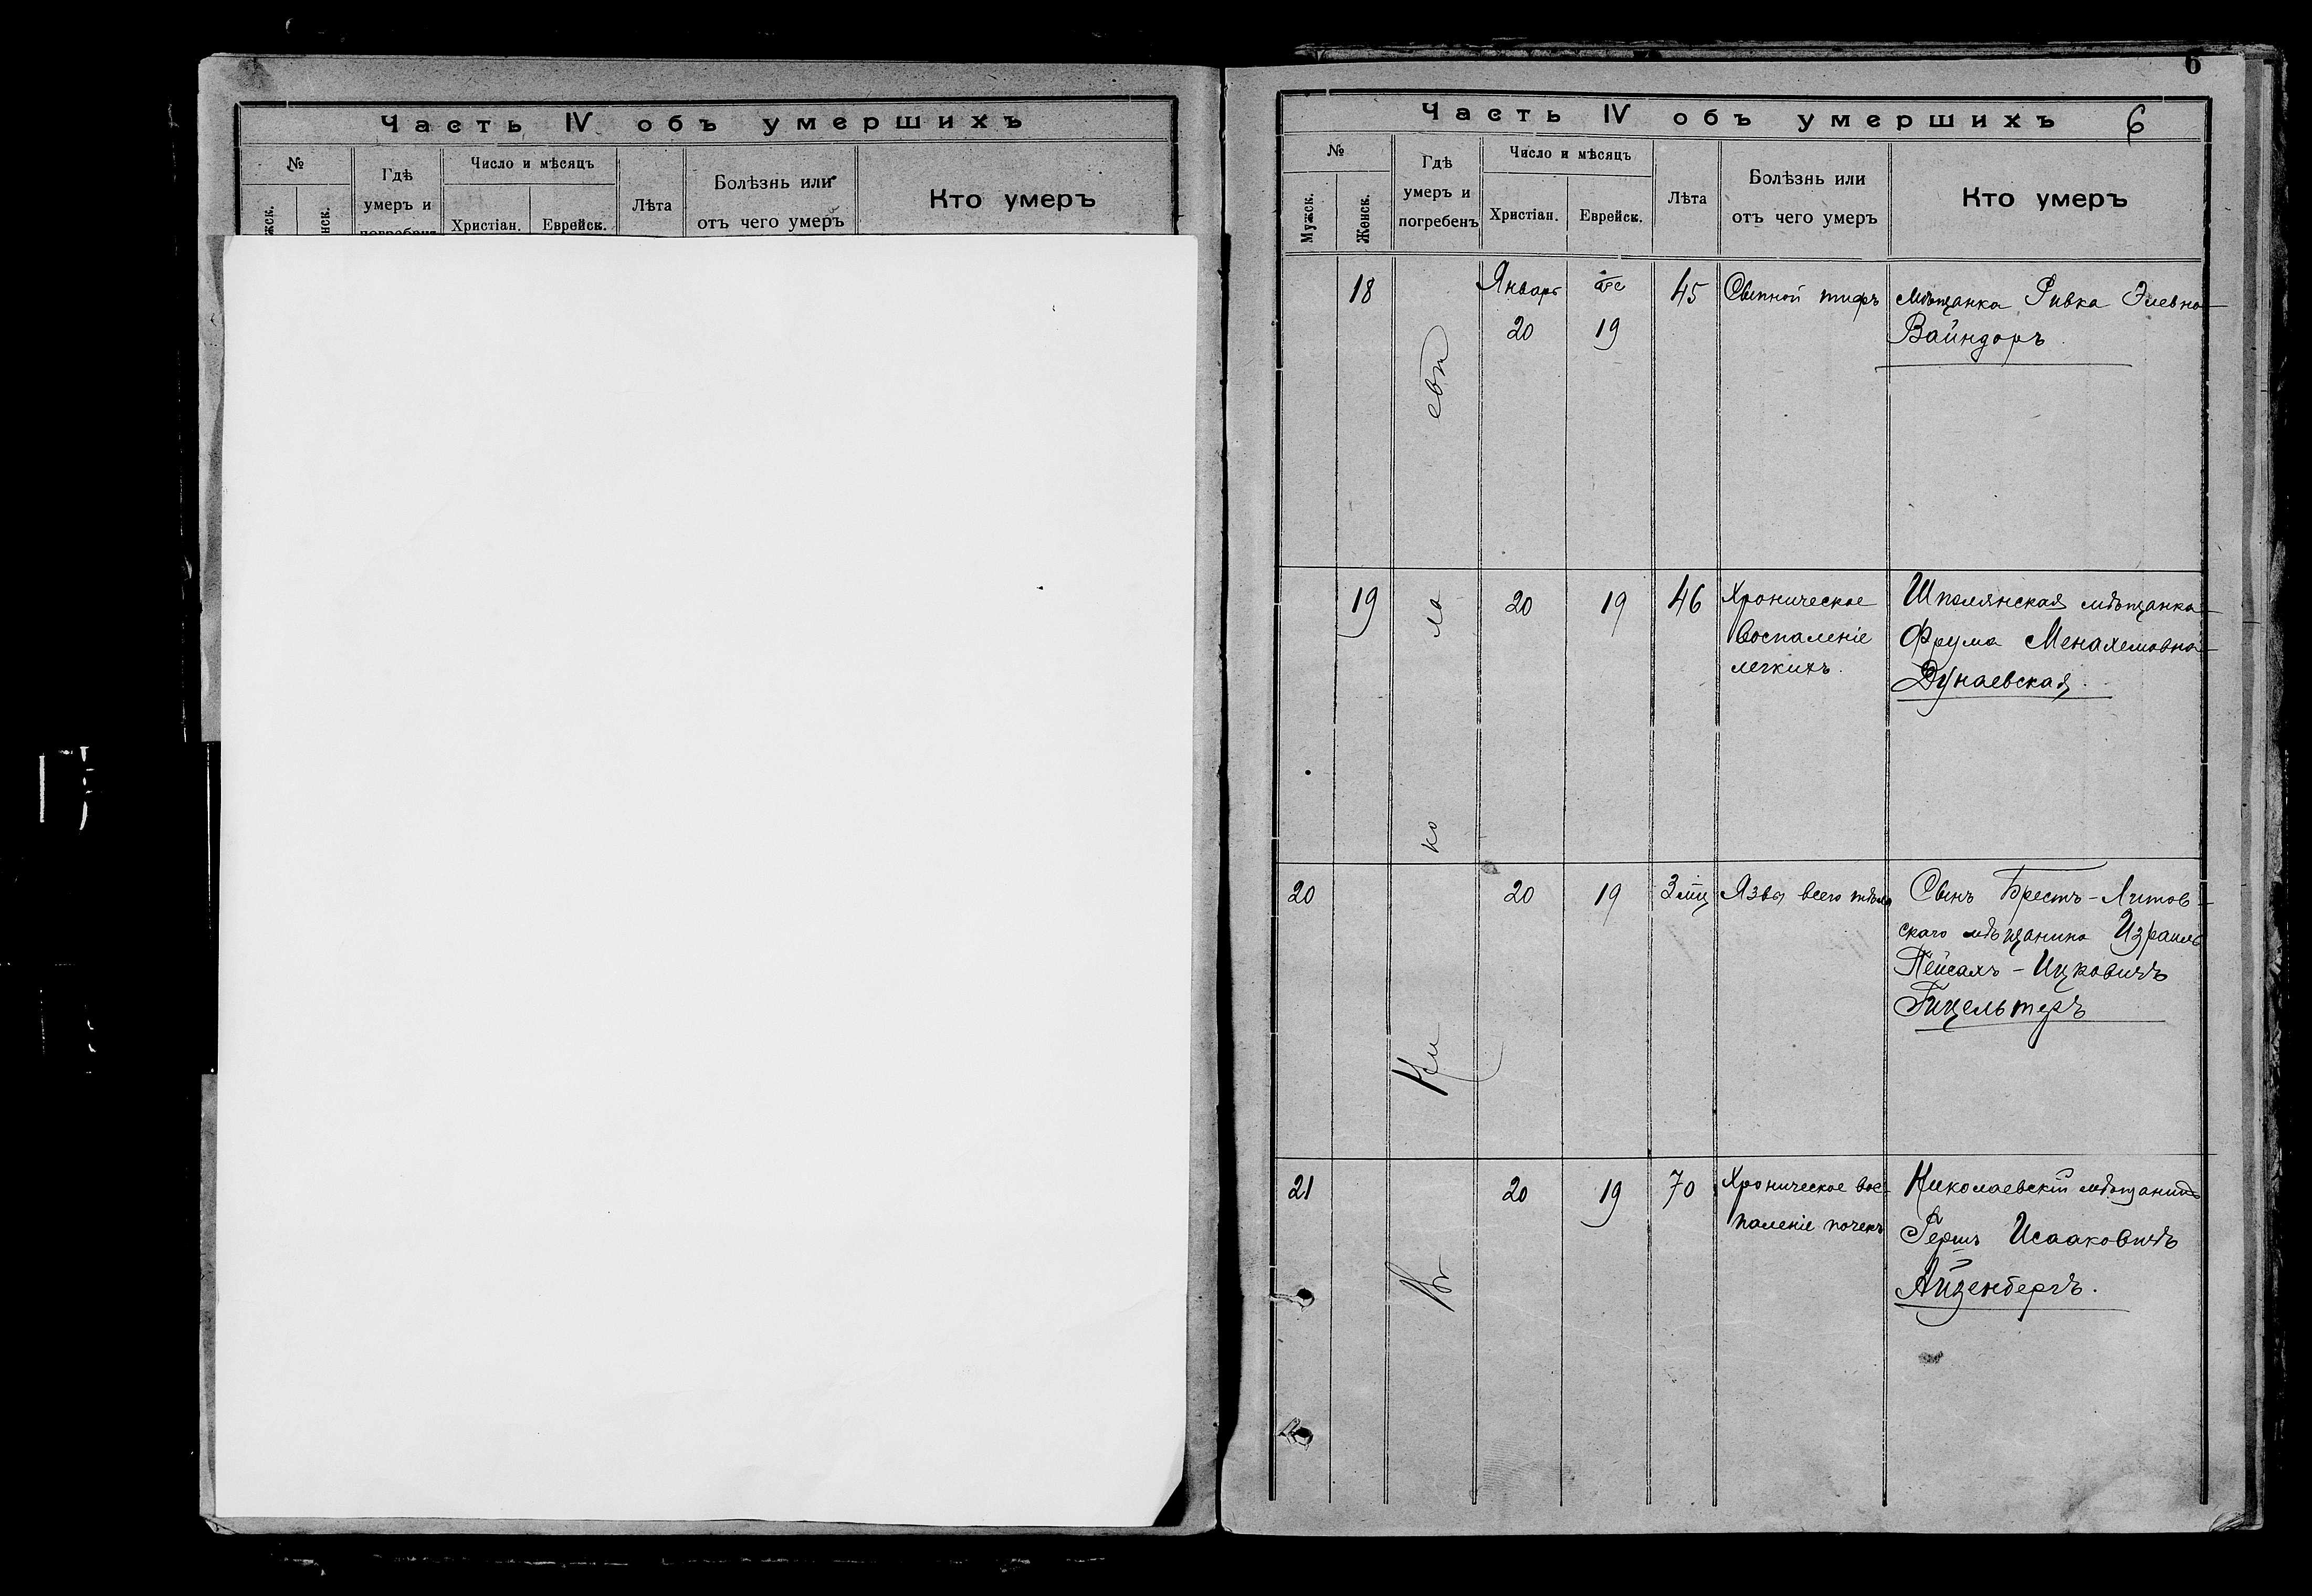 Часть IV объ умершихъ
№
Гдѣ
умеръ и
Число и мѣсяцъ
Христіан.
Еврейск.
Лѣта
Болѣзнь или
отъ чего умеръ
Кто умеръ
6
Часть IV объ умершихъ 6
№
Мужск.
Женск.
Гдѣ
умеръ и
погребенъ
Число и мѣсяцъ
Христіан.
Еврейск.
Лѣта
Болѣзнь или
отъ чего умеръ
Кто умеръ
Въ Ни ко ла евѣ
18
Январь
20
19
45
Сыпной тифъ
Мѣщанка Ривка Элевна
Вайндоръ
19
20
19
46
Хроническое
воспаленіе
легкихъ.
Шполянская мѣщанка
Фрума Менахемовна
Дунаевская.
20
20
19
3 мѣц
Язвы всего тѣла
Сынъ Брестъ-Литов-
скаго мѣщанина Израиль
Пейсахъ-Ицковичъ
Гицельтеръ
21
20
19
70
Хроническое вос-
паленіе почекъ
Николаевскій мѣщанинъ
Гершъ Исааковичъ
Айзенбергъ.